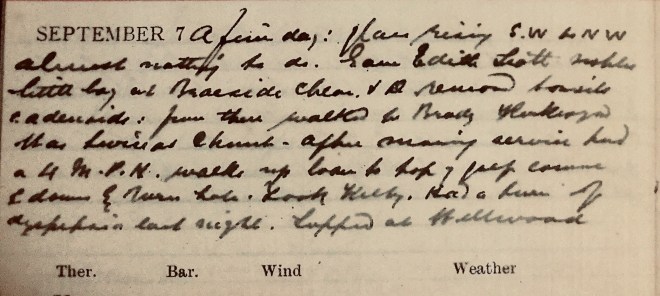 SEPTEMBER 7 A fine day: glass rising S.W to NW
almost nothing to do. Gave Edith Scott
little boy at Braeside Chlor. & removed tonsils
& adenoids: from there walked to Brady
Was twice at Church - after morning service had
a 4 M.P.H. walk up loan to top of
& down & Burn hole. Took Kelty. Had a turn of
dyspepsia last night. Supped at Hillwood
Ther. Bar. Wind Weather